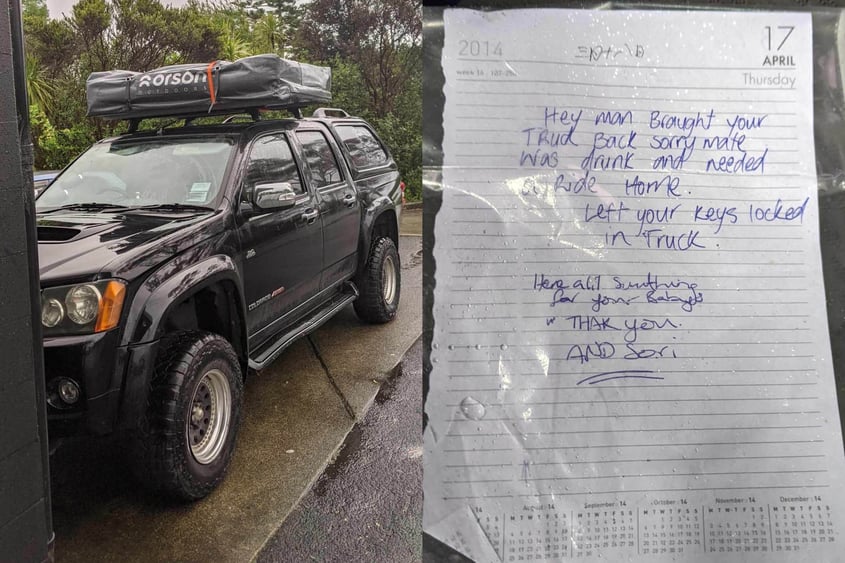 orson
OUTDOORS
COLORADO
2014
17
APRIL
Thursday
Hey man Braught your
TRuck Back sorry mate
was drunk and needed
a Ride Home.
Left your keys locked
in Truck.
Here a lil Sumthing
for your
" THAK you.
AND Sori
August · 14
September · 14
October · 14
November · 14
December · 14